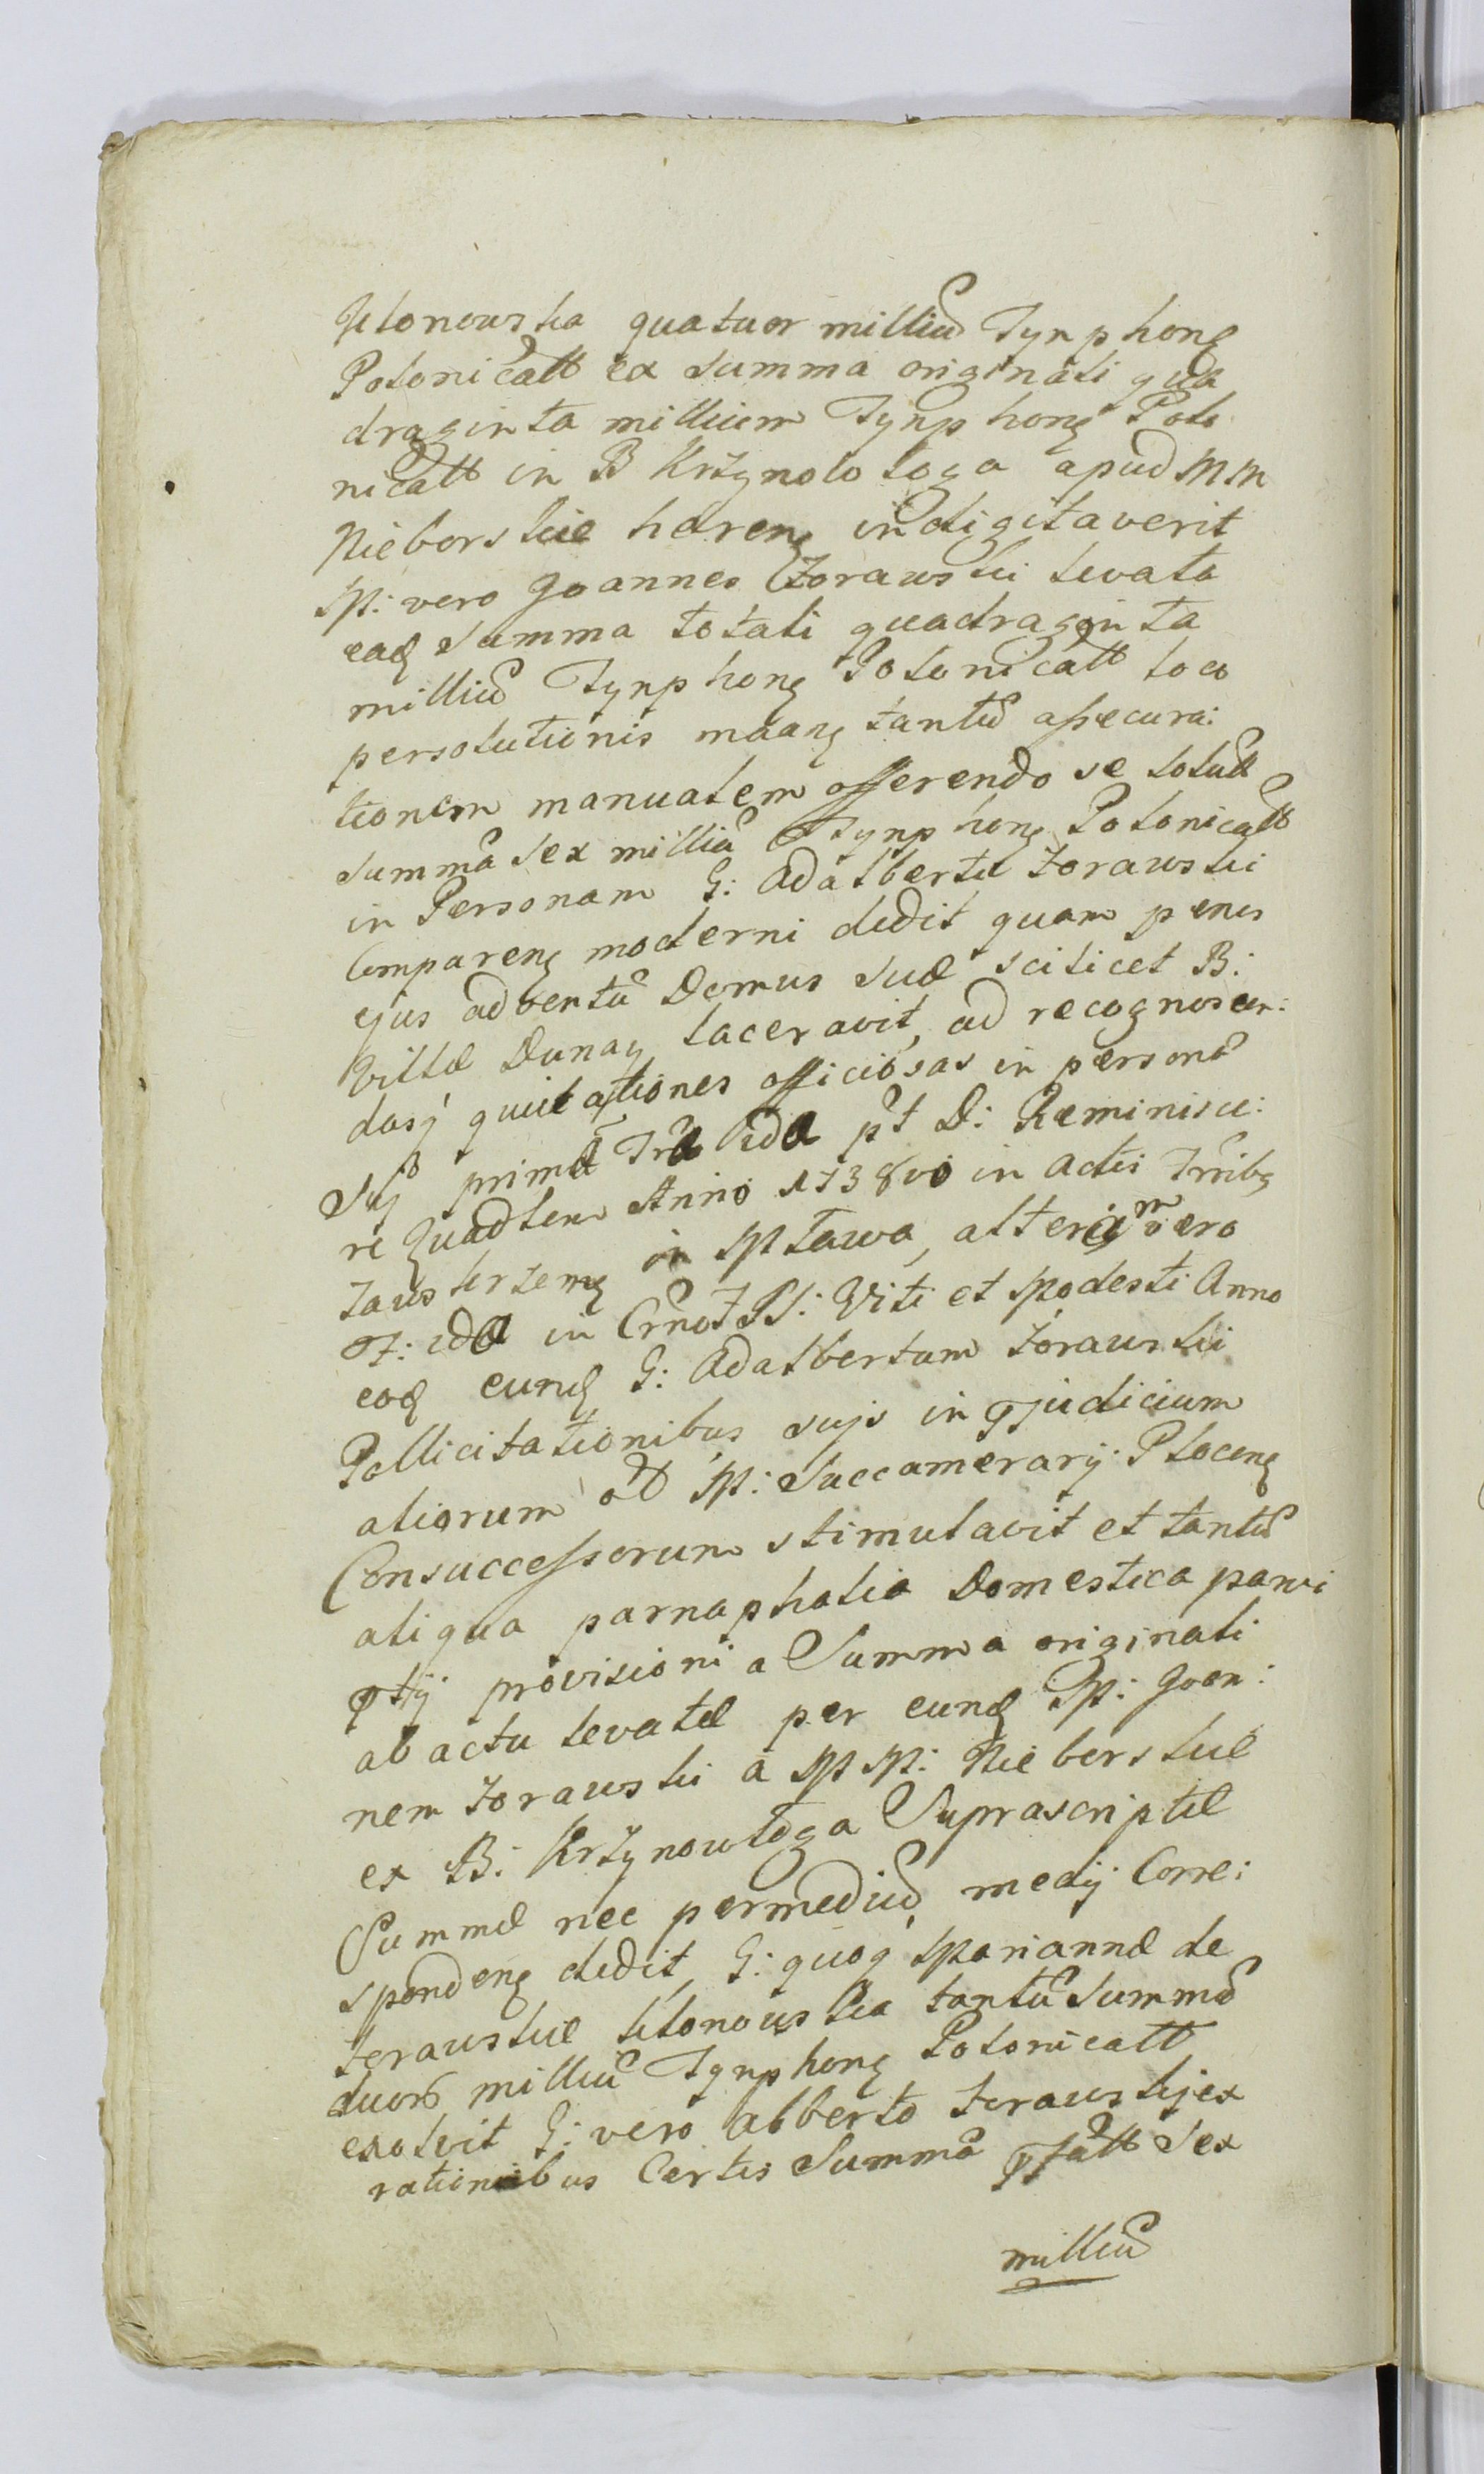 Klonowska quatuor milliu Tynphong
Polonicall ex Summa originali qua
draginta millium Tynphong Polo
nicall in B Krzynolologa apud MM
Nieborskie hæreng indigitaverit
M: vero Joannes Zorawski levata
eadg Summa totali quadraginta
milliu Tynphong Polonicall loco
persolutionis maang tantu assecura:
tionem manualem offerendo se soluæ
summa sex milliu Tynphong Polonicall
in Personam G: Adalbertu Zorawski
Compareng moderni dedit quam penes
ejus adventu Domus suæ scilicet B:
Villæ Dunay laceravit, ad recognoscen:
dasq quietationes officiosas in persona
suj primæ Træ idæ pt D: Reminisce:
re Quadlem Anno 1738vo in Actis Trribg
Zawskrzeng in Mława, alteram vero
F: idæ in Crno F SS: Viti et Modesti Anno
eodg eundg G: Adalbertum Zorawski
Pollicitationibus sujs in Judicium
aliorum ad M: Succamerarij Ploceng
Consuccessorum stimulavit et tantu
aliqua parnaphalia Domestica parvi
ptij provisioni a Summa originali
ab actu levatæ per eundg M: Joan:
nem Zorawski a MM: Nieborskie
ex B: Krzynowloga Suprascriptæ
Summæ nec permediu medij Corre:
spondeng dedit, G: quoq Mariannæ de
Zorawskie Klonowska tantu Summa
duorum milliu Tynphong Polonicall
exolvit G: vero Alberto Zorawskj ex
rationibus Certis Summa Pfall Sex
milliu